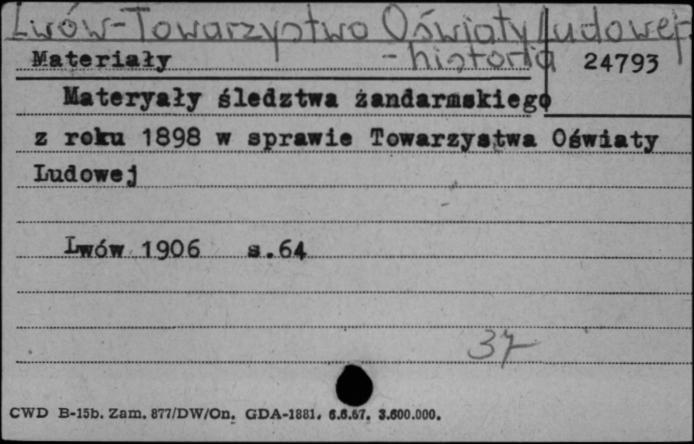 Lwów-Towarzystwo Oświaty Ludowej-
Materiały - historia 24793
Materyały śledztwa żandarmskiego
z roku 1898 w sprawie Towarzystwa Oświaty
Ludowej
Lwów 1906 s.64
37
CWD B-15b. Zam. 877/DW/On. GDA-1881. 6.6.67. 3.600.000.